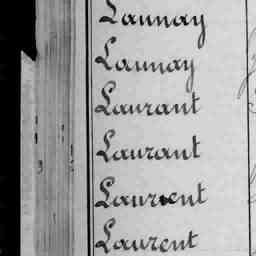 Launay
Launay
Laurant
Laurant
Laurent
Laurent